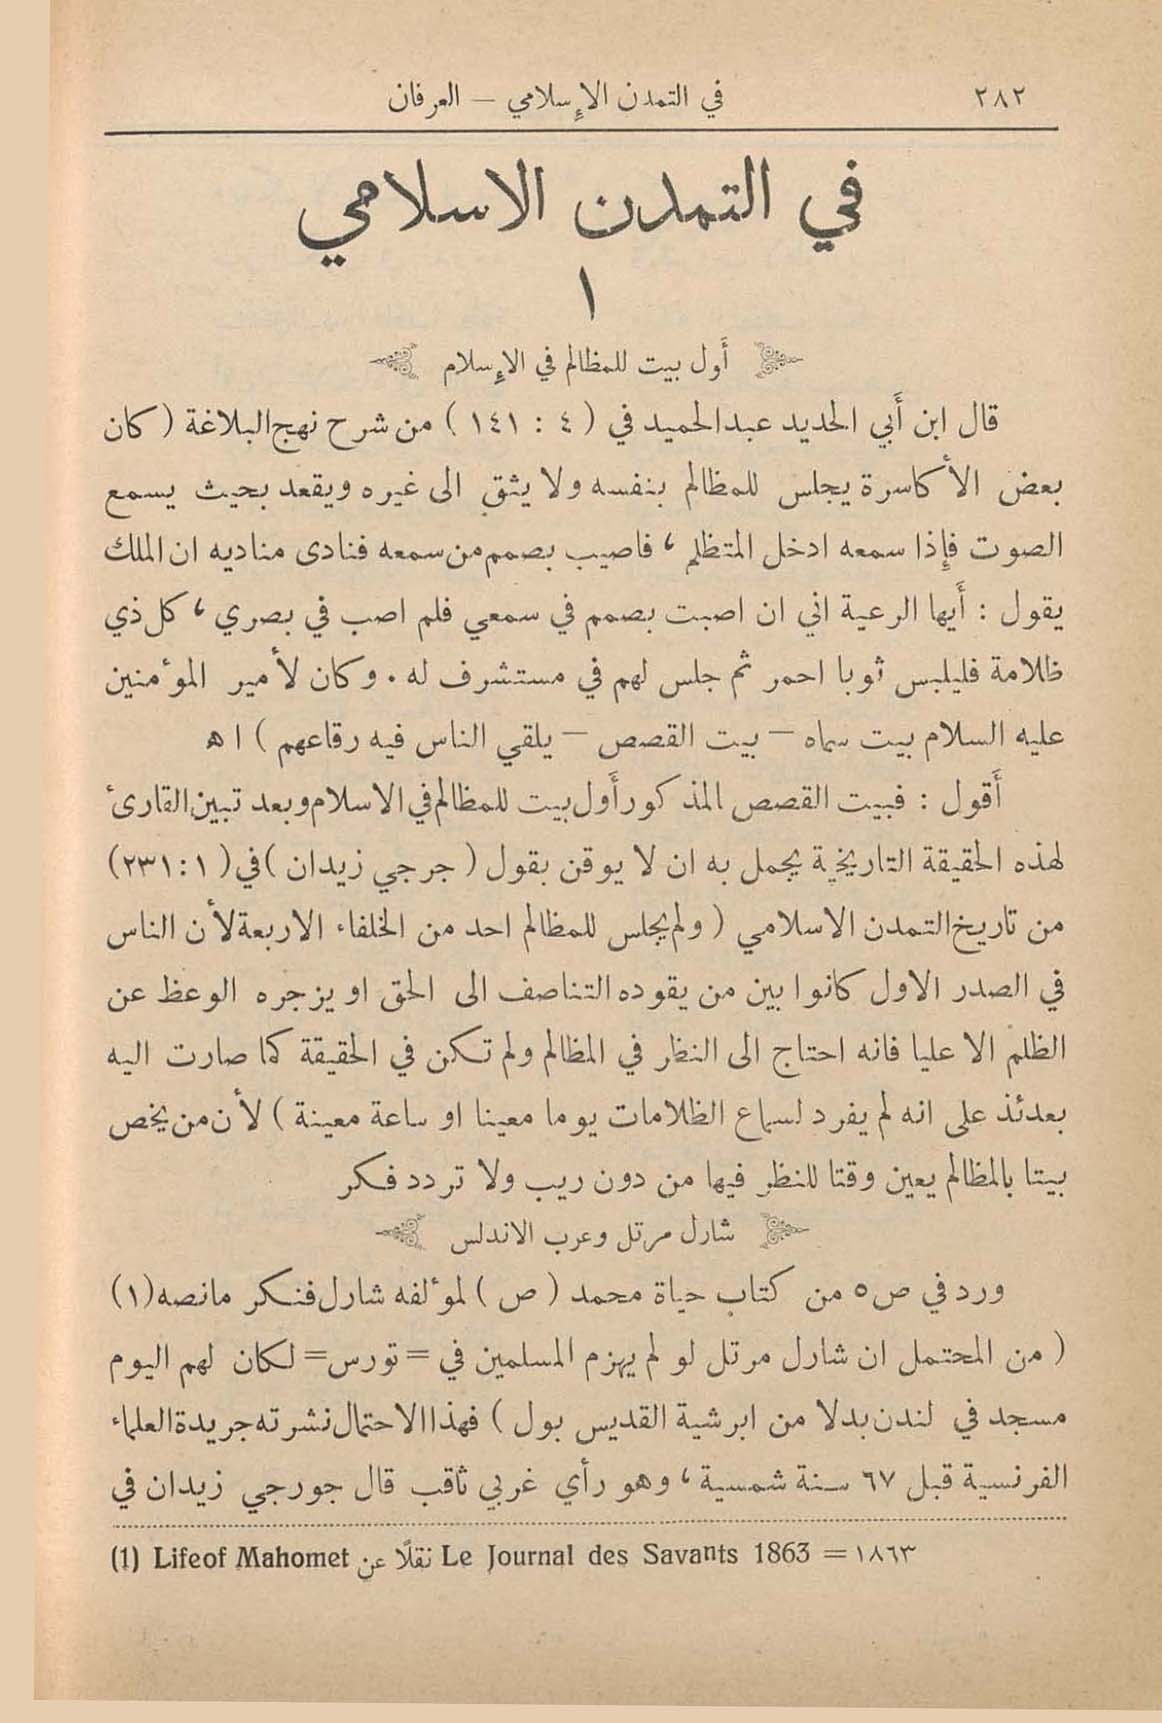 ٢٨٢
في التمدن الإسلامي — العرفان
في التمدن الاسلامي
١
أول بيت للمظالم في الإسلام
قال ابن أبي الحديد عبدالحميد في ( ٤ : ١٤١ ) من شرح نهج البلاغة ( كان
بعض الأكاسرة يجلس للمظالم بنفسه ولا يثق الى غيره ويقعد بحيث يسمع
الصوت فإذا سمعه ادخل المتظلم ، فاصيب بصمم من سمعه فنادى مناديه ان الملك
يقول : أيها الرعية اني ان اصبت بصمم في سمعي فلم اصب في بصري ، كل ذي
ظلامة فليلبس ثوبا احمر ثم جلس لهم في مستشرف له . وكان لأمير المؤمنين
عليه السلام بيت سماه — بيت القصص — يلقي الناس فيه رقاعهم ) ا ه
أقول : فبيت القصص المذكور أول بيت للمظالم في الاسلام وبعد تبين القارئ
لهذه الحقيقة التاريخية يجمل به ان لا يوقن بقول ( جرجي زيدان ) في ( ١ : ٢٣١)
من تاريخ التمدن الاسلامي ( ولم يجلس للمظالم احد من الخلفاء الاربعة لأن الناس
في الصدر الاول كانوا بين من يقوده التناصف الى الحق او يزجره الوعظ عن
الظلم الا عليا فانه احتاج الى النظر في المظالم ولم تكن في الحقيقة كما صارت اليه
بعدئذ على انه لم يفرد لسماع الظلامات يوما معينا او ساعة معينة ) لأن من يخص
بيتا بالمظالم يعين وقتا للنظر فيها من دون ريب ولا تردد فكر
شارل مرتل وعرب الاندلس
ورد في ص ٥ من كتاب حياة محمد ( ص ) لمؤلفه شارل فنكر مانصه (١)
( من المحتمل ان شارل مرتل لو لم يهزم المسلمين في = تورس = لكان لهم اليوم
مسجد في لندن بدلا من ابرشية القديس بول ) فهذا الاحتمال نشرته جريدة العلماء
الفرنسية قبل ٦٧ سنة شمسية ، وهو رأي غربي ثاقب قال جورجي زيدان في
(1) Lifeof Mahomet نقلًا عن Le Journal des Savants 1863 = ١٨٦٣